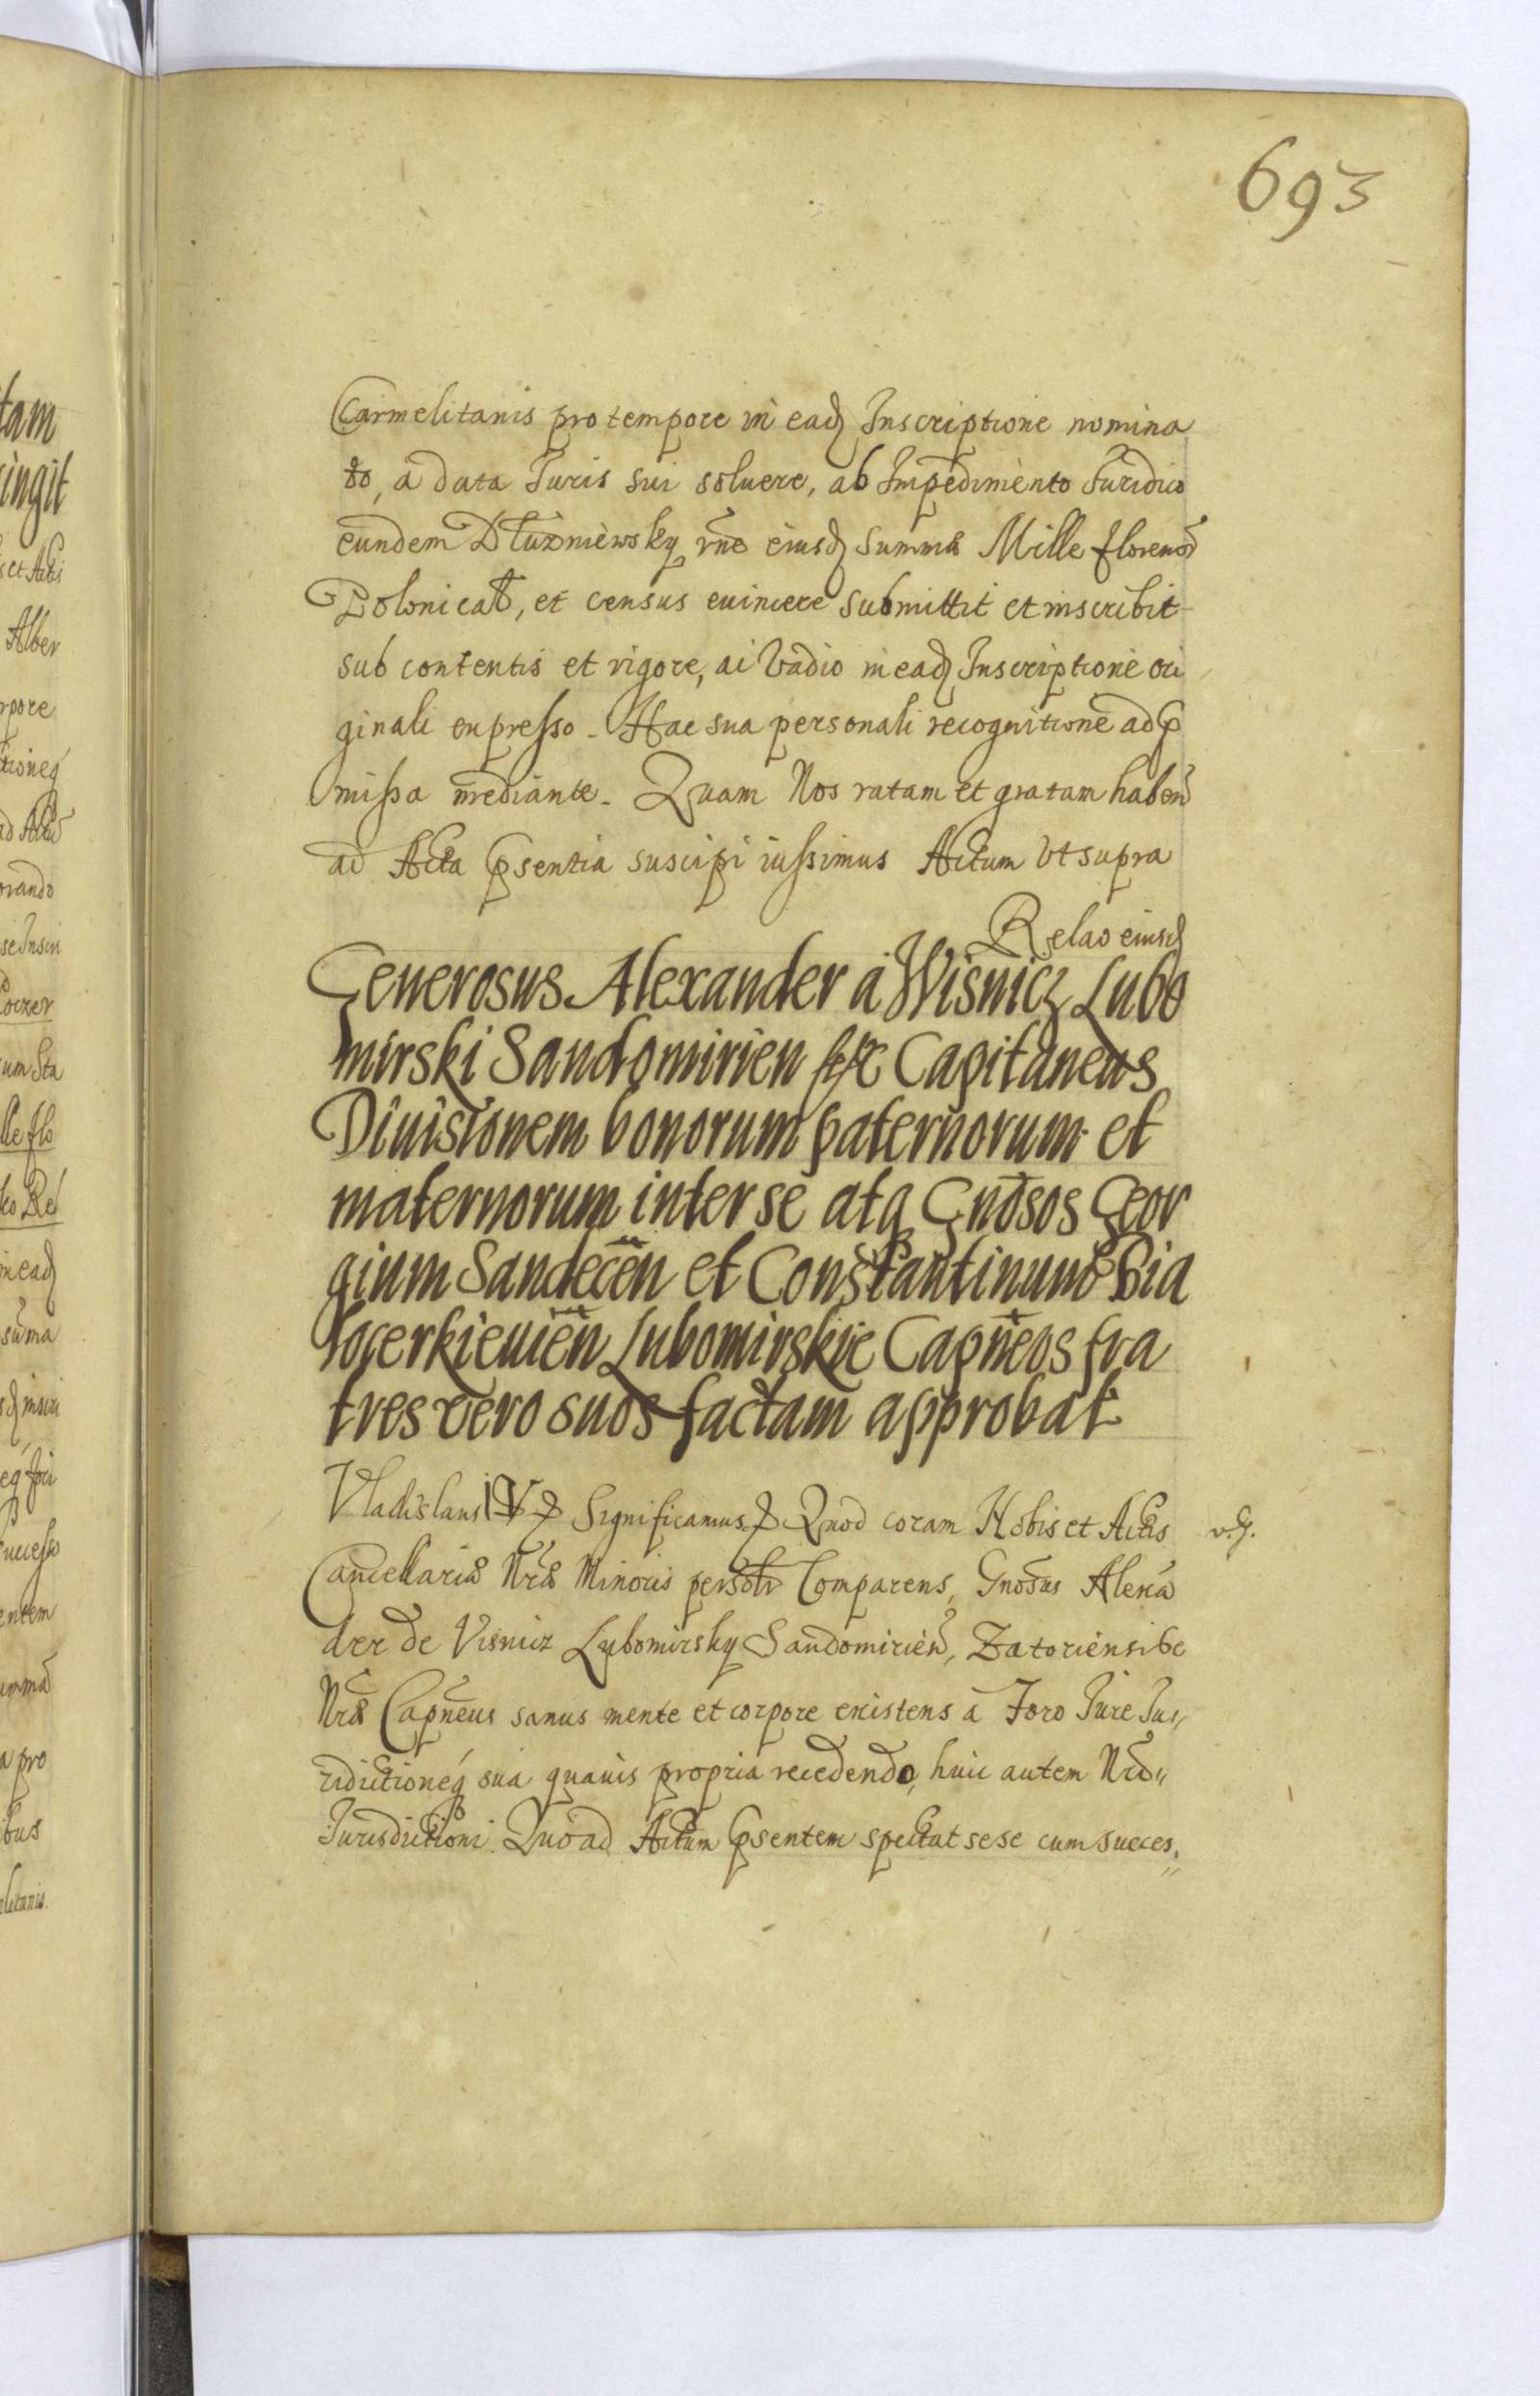 693
Carmelitanis pro tempore in ead Inscriptione nomina
to, a data Juris sui soluere, ab Impedimento Juridico
eundem Dłuzniewsky rne eiusd summæ Mille florenor
Polonical, et census euincere submittit et inscribit
sub contentis et rigore, ai Vadio in ead Inscriptione ori
ginali expresso. Hac sua personali recognitione ad p
missa mediante. Quam Nos ratam et gratam haben
ad Acta psentia suscipi iussimus Actum Vt supra
Relao eiusd
Generosus Alexander a Wisnicz Lubo
mirski Sandomirien Capitaneus
Diuisionem bonorum paternorum et
maternorum inter se atq Gnosos Geor
gium Sandecen et Constantinum Bia
locerkieuien Lubomirskie Capneos fra
tres vero suos factam approbat
Vladislaus IV Significamus Quod coram Nobis et Actis
v.g.
Cancellariæ Nræ Minoris persolr Comparens, Gnosus Alexa
der de Visnicz Lubomirsky Sandomirien, Zatoriensibe
Nræ Capneus sanus mente et corpore existens a Foro Jure Ju,,
ridictioneq sua quauis propria recedendo, huic autem Nro,,
Jurisdictioni Quo ad Actum psentem spectat sese cum succes,,
tam
cingit
et Actis
Alber
rpore
tioneq
orando
se Inscri
um Sta
lle flo
in ead
suma
successo
entem
umma
a pro
ibus
elitanis